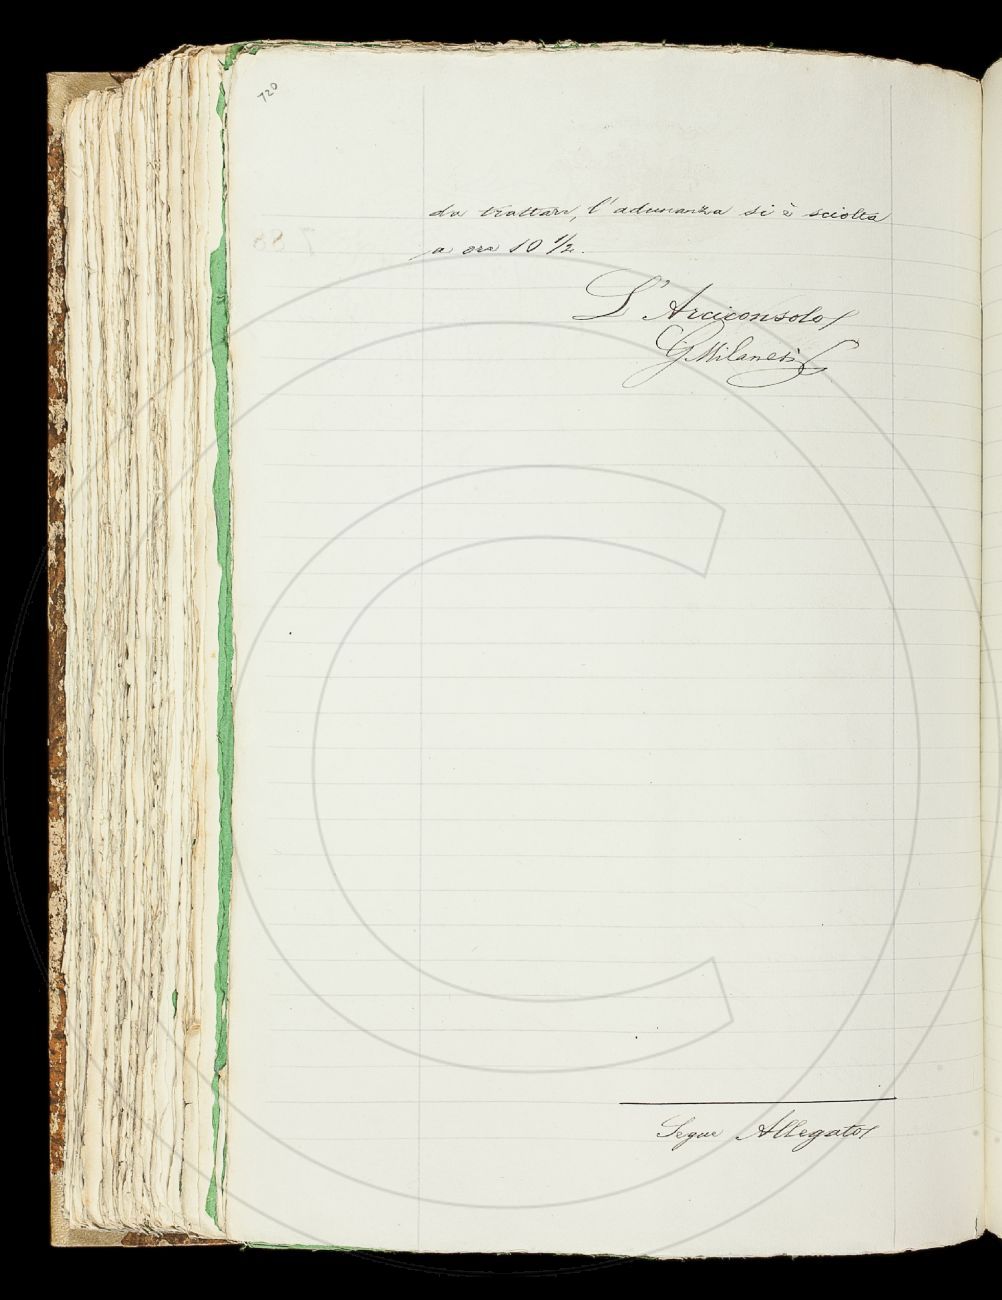 720
da trattare, l'adunanza si è sciolta
a ore 10 1/2.
L'Arciconsolo
G Milanesi
Segue Allegato